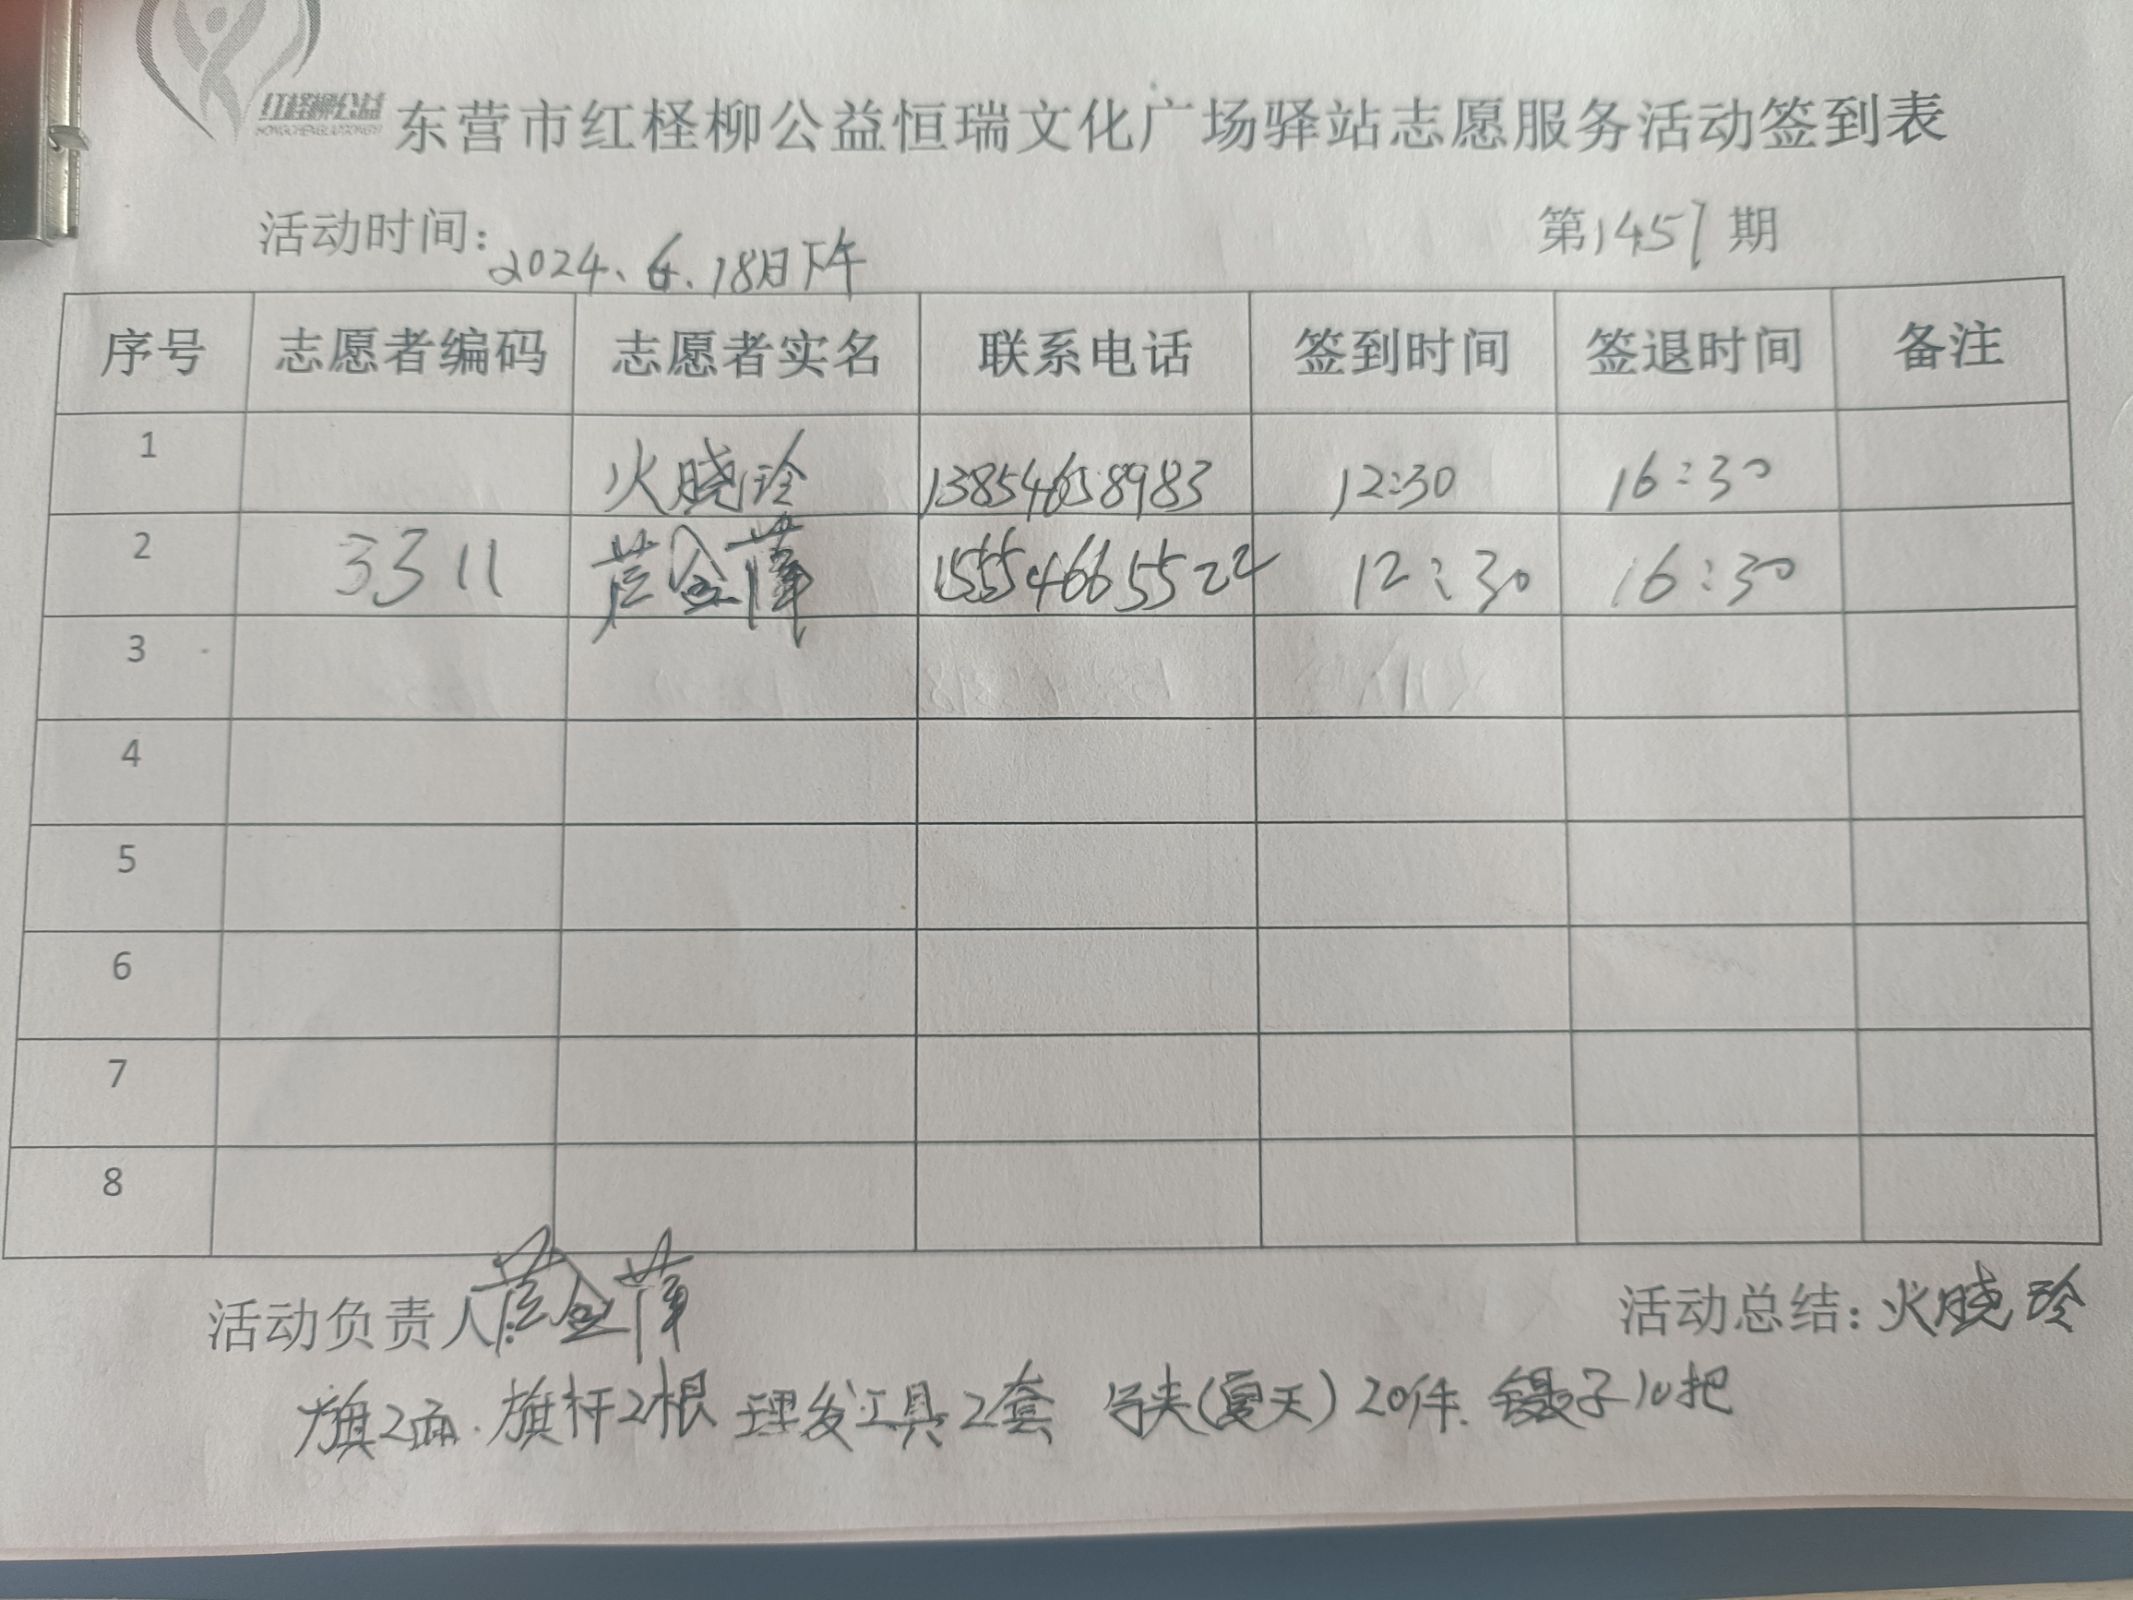 红柽柳公益
HONGCHENGLIUGONGYI
东营市红柽柳公益恒瑞文化广场驿站志愿服务活动签到表
活动时间：2024、6.18日下午 第1457期
序号 志愿者编码 志愿者实名 联系电话 签到时间 签退时间 备注
1 火晓玲 13854658983 12:30 16:30
2 3311 芦金萍 15554665522 12:30 16:30
3
4
5
6
7
8
活动负责人：芦金萍 活动总结：火晓玲
旗2面.旗杆2根 理发工具2套 (夏天)20件.镊子10把